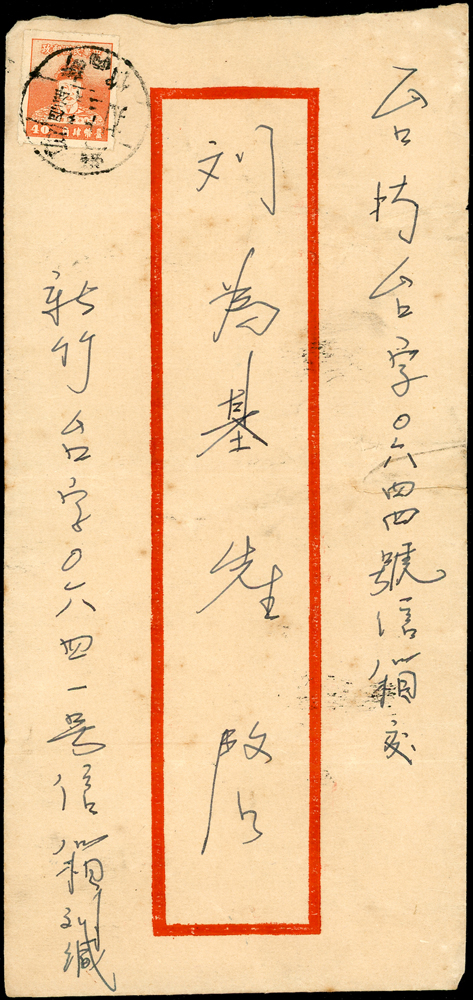 台灣台字〇六四四號信箱交
刘為基先生 啟
新竹台字〇六四一号信箱刘缄
40